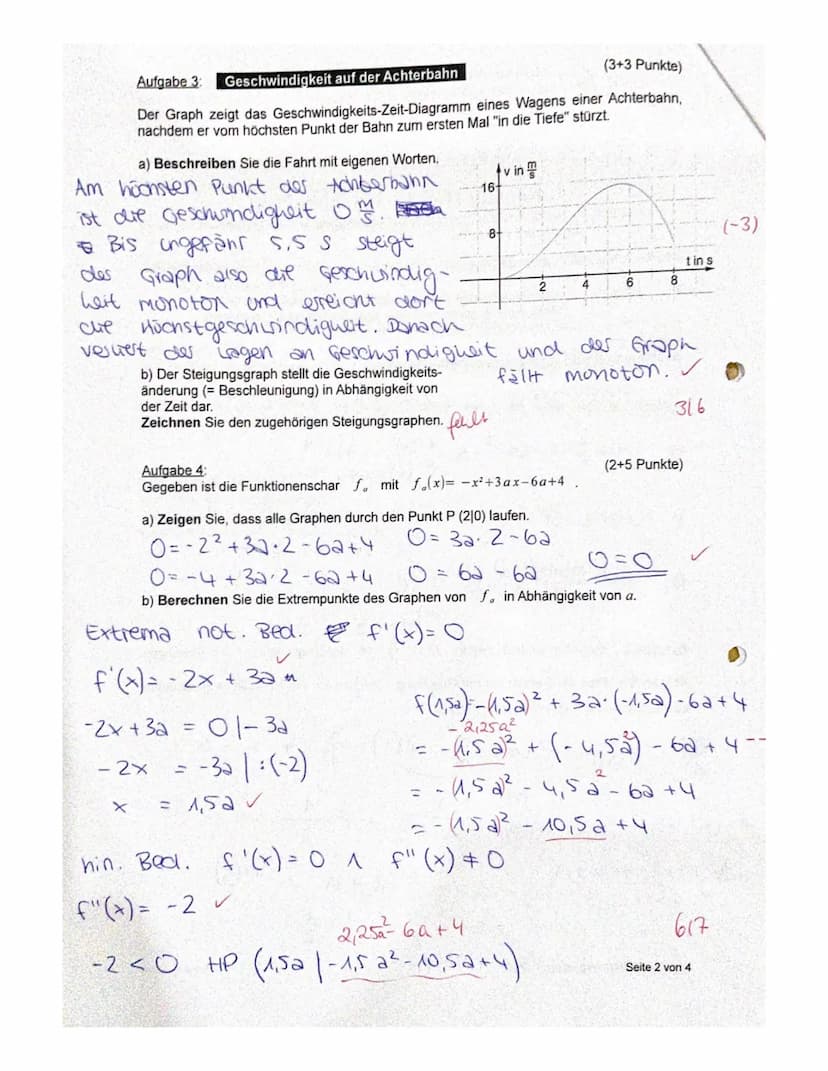 Aufgabe 3: Geschwindigkeit auf der Achterbahn (3+3 Punkte)
Der Graph zeigt das Geschwindigkeits-Zeit-Diagramm eines Wagens einer Achterbahn,
nachdem er vom höchsten Punkt der Bahn zum ersten Mal "in die Tiefe" stürzt.
a) Beschreiben Sie die Fahrt mit eigenen Worten.
v in m/s
16
8
2 4 6 8
t in s
(-3)
Am höchsten Punkt der Achterbahn
ist die Geschwindigkeit 0 m/s.
Bis ungefähr 5,5 s steigt
der Graph also die Geschwindig-
keit monoton und erreicht dort
die Höchstgeschwindigkeit. Danach
verliert der Wagen an Geschwindigkeit und der Graph
fällt monoton. ✓
b) Der Steigungsgraph stellt die Geschwindigkeits-
änderung (= Beschleunigung) in Abhängigkeit von
der Zeit dar.
Zeichnen Sie den zugehörigen Steigungsgraphen. fehlt
3/6
Aufgabe 4: (2+5 Punkte)
Gegeben ist die Funktionenschar fₐ mit fₐ(x)= −x²+3ax−6a+4 .
a) Zeigen Sie, dass alle Graphen durch den Punkt P (2|0) laufen.
0=-2² +3a·2 -6a+4 0= 3a·2-6a
0=-4 +3a·2 -6a+4 0 = 6a -6a 0=0 ✓
b) Berechnen Sie die Extrempunkte des Graphen von fₐ in Abhängigkeit von a.
Extrema not. Bed. f'(x)=0
f'(x)= -2x + 3a ✓
-2x+3a = 0 |-3a
-2x = -3a |:(-2)
x = 1,5a ✓
f(1,5a)=-(1,5a)² + 3a·(-1,5a) -6a+4
-2,25a²
= -(1,5a)² + (-4,5a²) - 6a + 4 --
= -(1,5a)² - 4,5a² - 6a +4
= -(1,5a)² - 10,5a +4
hin. Bed. f'(x)=0 ∧ f''(x) ≠ 0
f''(x)= -2 ✓
2,25a² - 6a+4
6/7
-2 < 0 HP (1,5a | -1,5a² -10,5a+4)
Seite 2 von 4